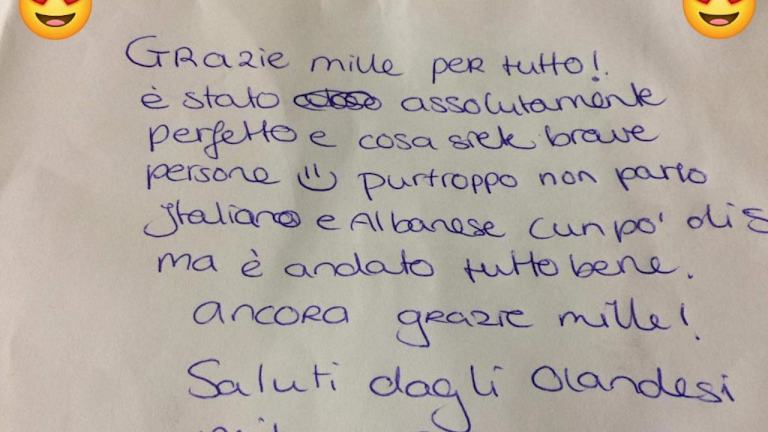 Grazie mille per tutto!
è stato assolutamente
perfetto e cosa siete brave
persone purtroppo non parlo
Italiano e Albanese cunpo' di
ma è andato tutto bene.
ancora grazie mille!
Saluti dagli Olandesi